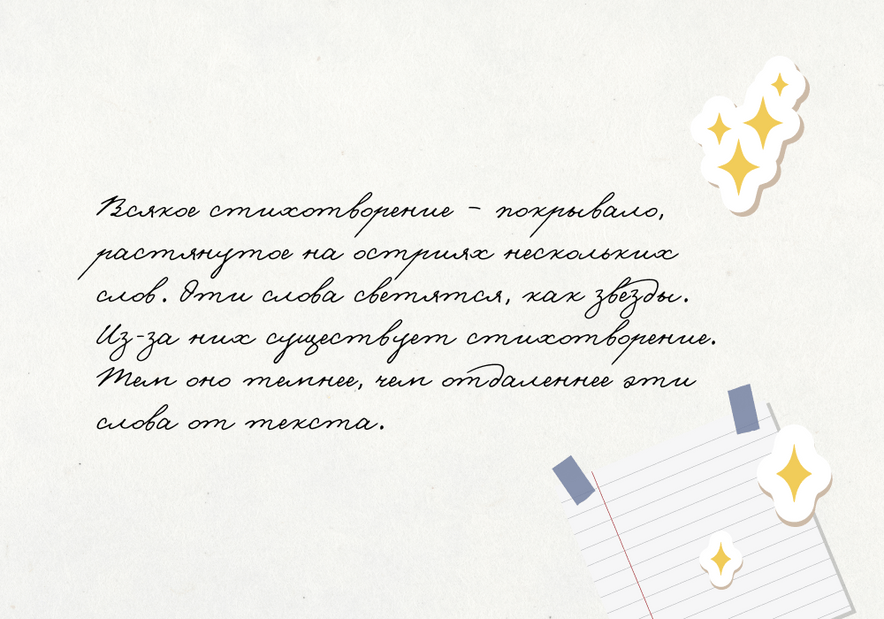 Всякое стихотворение – покрывало,
растянутое на остриях нескольких
слов. Эти слова светятся, как звёзды.
Из-за них существует стихотворение.
Тем оно темнее, чем отдаленнее эти
слова от текста.